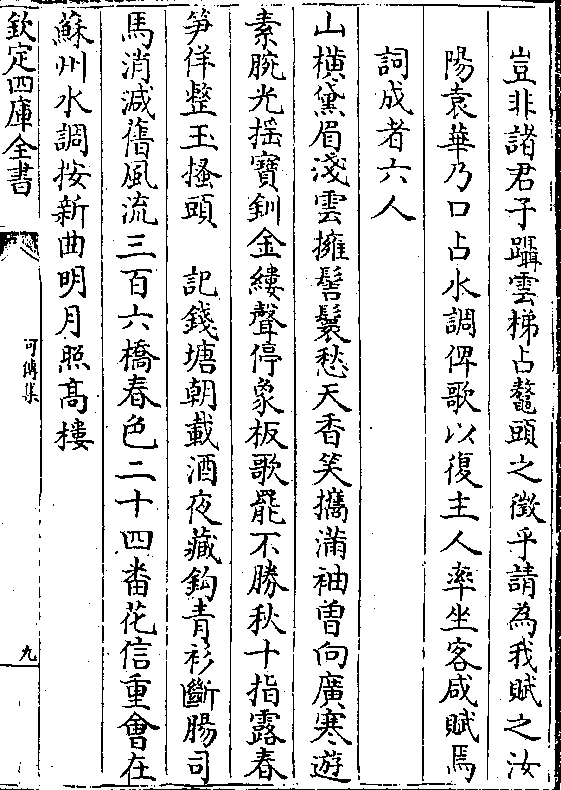 豈非諸君子躡雲梯占鼇頭之徵乎請為我賦之汝
陽袁華乃口占水調俾歌以復主人率坐客咸賦焉
詞成者六人
山橫黛眉淺雲擁髻鬟愁天香笑攜滿袖曾向廣寒遊
素腕光搖寶釧金縷聲停象板歌罷不勝秋十指露春
笋佯整玉搔頭　記錢塘朝載酒夜藏鈎青衫斷腸司
馬消減舊風流三百六橋春色二十四畨花信重會在
蘇州水調按新曲明月照髙樓
欽定四庫全書
可傳集
九